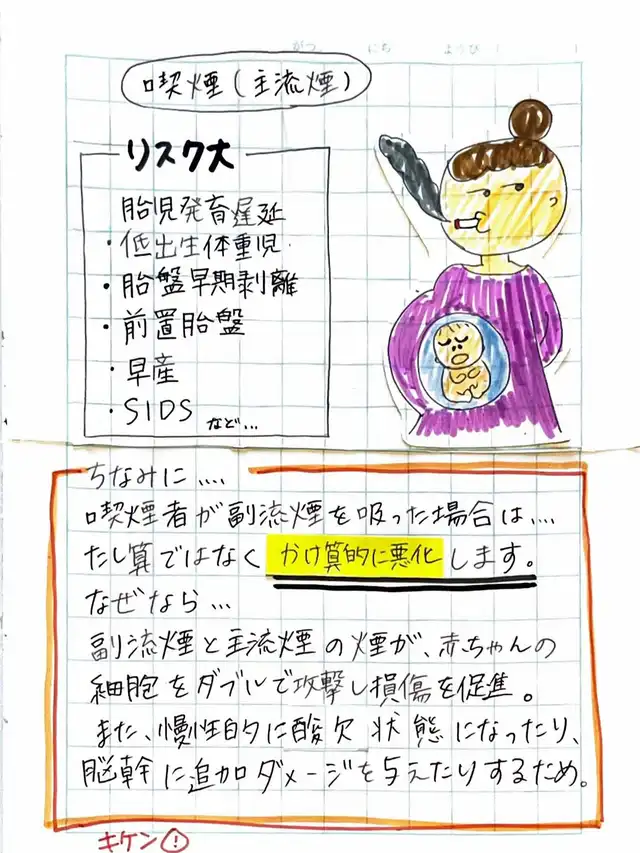 がつ にち ようび
喫煙(主流煙)
リスク大
胎児発育遅延
・低出生体重児
・胎盤早期剥離
・前置胎盤
・早産
・SIDS など...
ちなみに....
喫煙者が副流煙を吸った場合は....
たし算ではなく かけ算的に悪化します。
なぜなら...
副流煙と主流煙の煙が、赤ちゃんの
細胞をダブルで攻撃し損傷を促進。
また、慢性的に酸欠状態になったり、
脳幹に追加ダメージを与えたりするため。
キケン!